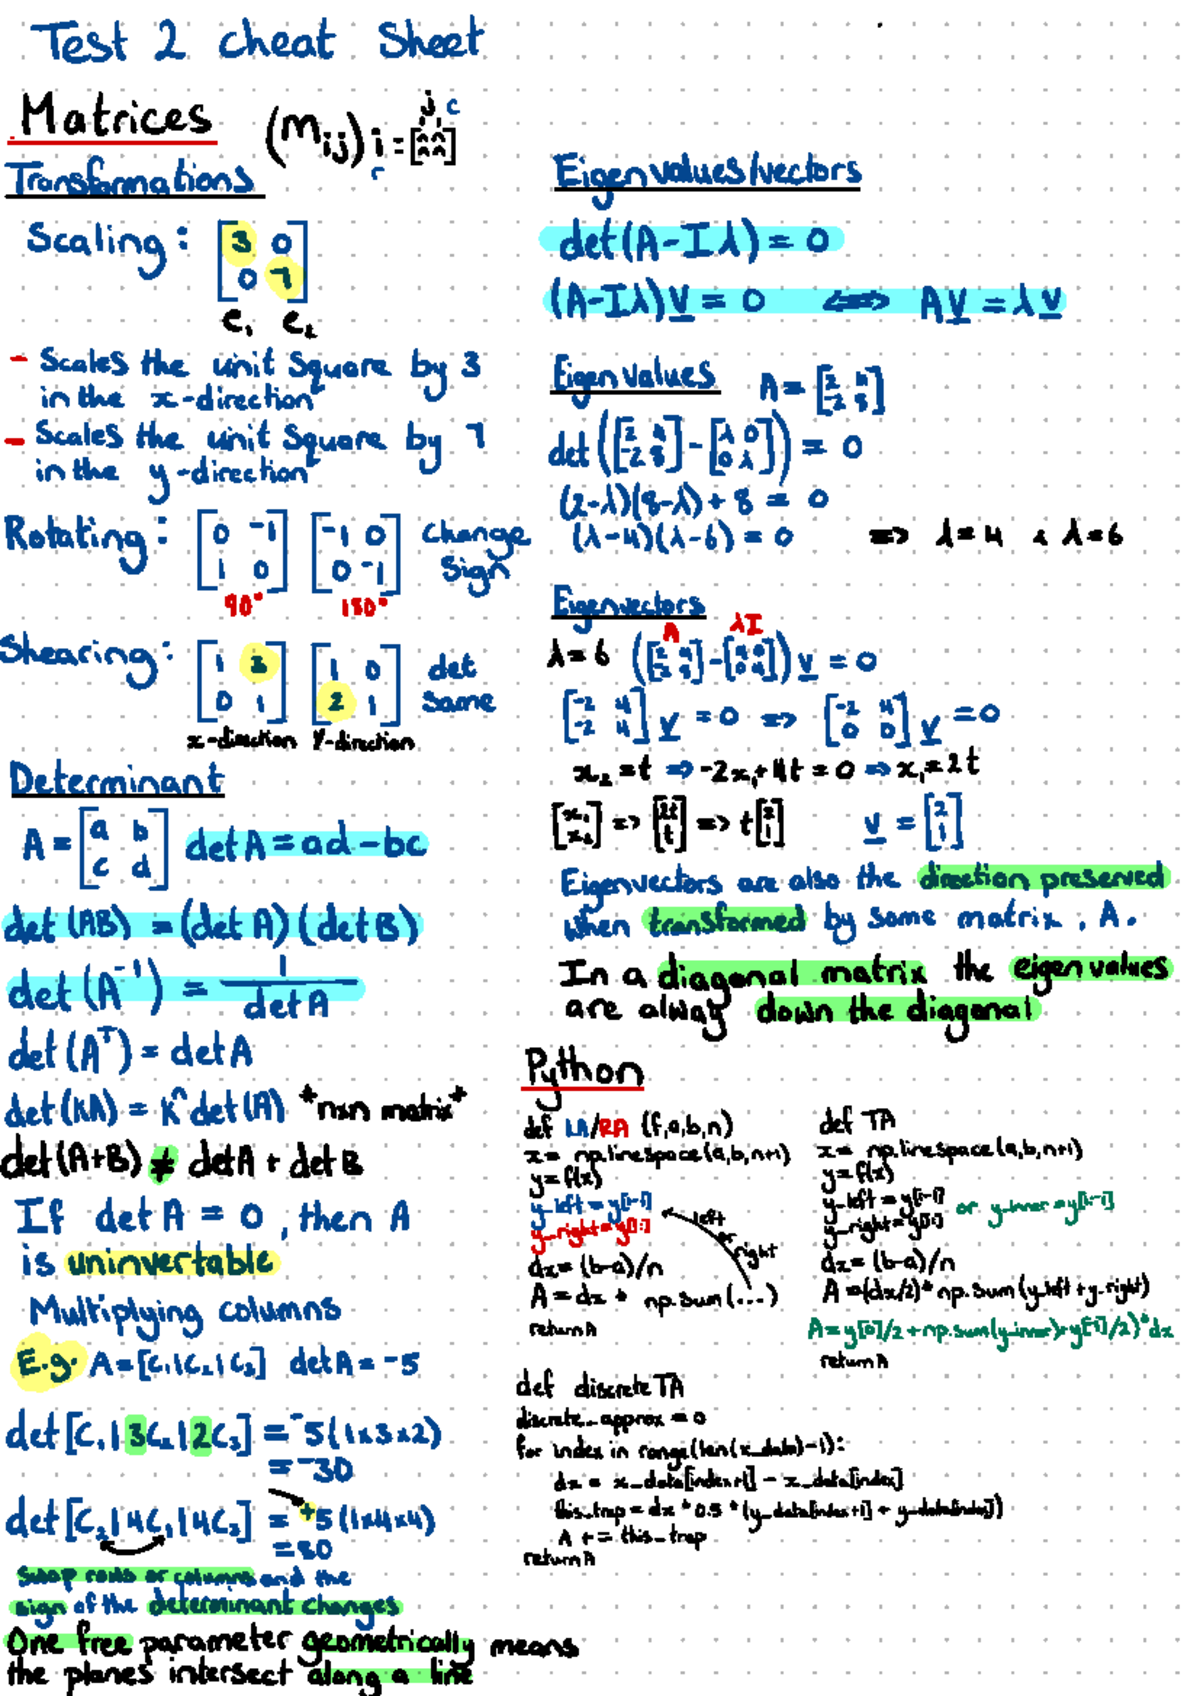 Test 2 cheat Sheet
Matrices
(m_ij) i = [ ] j c
r
Transformations
Scaling: [3 0; 0 7]
e₁ e₂
- Scales the unit Square by 3
in the x-direction
- Scales the unit Square by 7
in the y-direction
Rotating: [0 -1; 1 0] [-1 0; 0 -1] Change
Sign
90° 180°
Shearing: [1 3; 0 1] [1 0; 2 1] det
Same
x-direction Y-direction
Determinant
A = [a b; c d] det A = ad - bc
det (AB) = (det A)(det B)
det (A⁻¹) = 1 / det A
det (Aᵀ) = det A
det (kA) = kⁿ det (A) *nxn matrix*
det (A+B) ≠ det A + det B
If det A = 0, then A
is uninvertable
Multiplying columns
E.g. A = [C₁|C₂|C₃] det A = -5
det [C₁|3C₂|2C₃] = -5(1x3x2)
= -30
det [C₂|4C₁|4C₃] = +5(1x4x4)
= 80
Swap rows or columns and the
sign of the determinant changes
One free parameter geometrically means
the planes intersect along a line
Eigenvalues/vectors
det (A - Iλ) = 0
(A - Iλ)v = 0 <=> Av = λv
Eigenvalues A = [2 4; -2 8]
det ([2 4; -2 8] - [λ 0; 0 λ]) = 0
(2-λ)(8-λ) + 8 = 0
(λ-4)(λ-6) = 0 => λ=4 & λ=6
Eigenvectors
A λI
λ=6 ([2 4; -2 8] - [ ]) v = 0
[-2 4; -2 4] v = 0 => [-2 4; 0 0] v = 0
x₂ = t => -2x₁ + 4t = 0 => x₁ = 2t
[x₁; x₂] => [2t; t] => t[2; 1] v = [2; 1]
Eigenvectors are also the direction preserved
when transformed by some matrix, A.
In a diagonal matrix the eigenvalues
are alway down the diagonal
Python
def LA/RA (f,a,b,n)
x = np.linespace(a,b,n+1)
y = f(x)
y_left = y[:-1]
y_right = y[1:]
left
or
right
dx = (b-a)/n
A = dx * np.sum(...)
return A
def TA
x = np.linespace(a,b,n+1)
y = f(x)
y_left = y[:-1] or y_inner = y[1:-1]
y_right = y[1:]
dx = (b-a)/n
A = (dx/2) * np.sum(y_left + y_right)
A = y[0]/2 + np.sum(y_inner) + y[-1]/2) * dx
return A
def discreteTA
discrete_approx = 0
for index in range(len(x_data)-1):
dx = x_data[index+1] - x_data[index]
this_trap = dx * 0.5 * (y_data[index+1] + y_data[index])
A += this_trap
return A